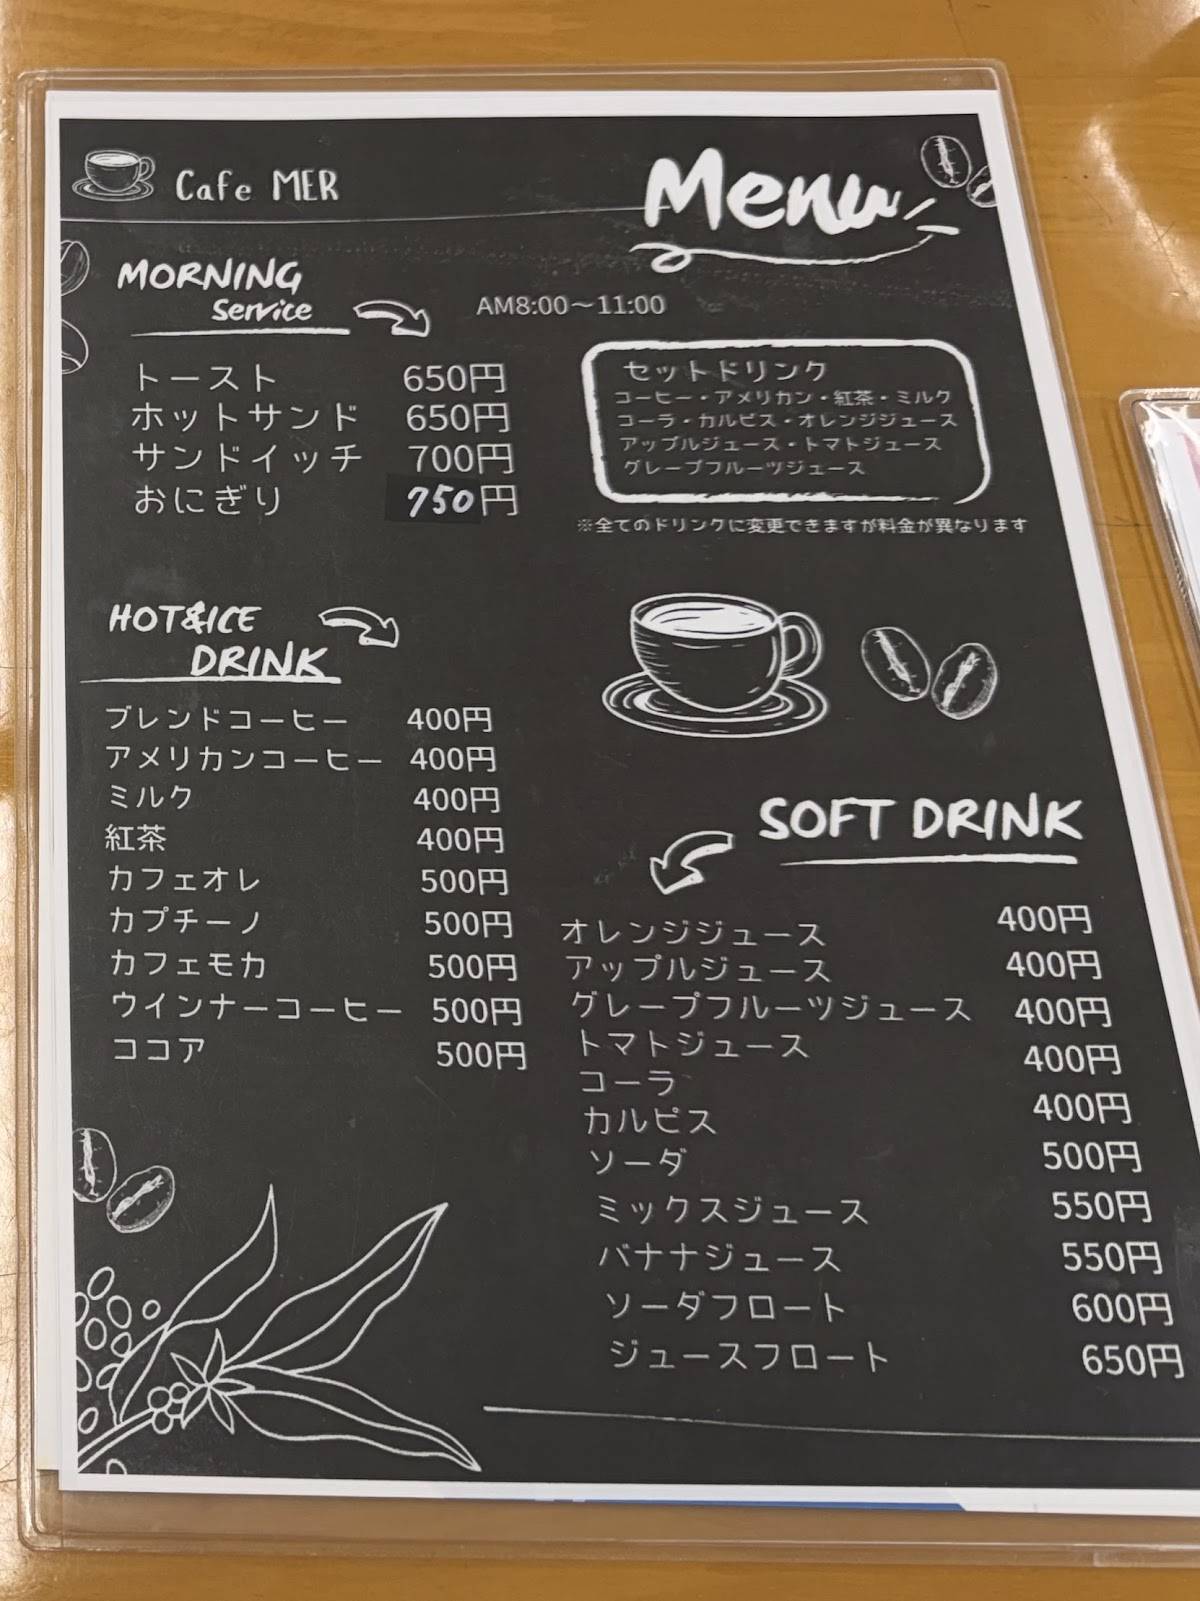 Cafe MER
Menu
MORNING
Service
AM8:00～11:00
トースト 650円
ホットサンド 650円
サンドイッチ 700円
おにぎり 750円
セットドリンク
コーヒー・アメリカン・紅茶・ミルク
コーラ・カルピス・オレンジジュース
アップルジュース・トマトジュース
グレープフルーツジュース
※全てのドリンクに変更できますが料金が異なります
HOT&ICE
DRINK
ブレンドコーヒー 400円
アメリカンコーヒー 400円
ミルク 400円
紅茶 400円
カフェオレ 500円
カプチーノ 500円
カフェモカ 500円
ウインナーコーヒー 500円
ココア 500円
SOFT DRINK
オレンジジュース 400円
アップルジュース 400円
グレープフルーツジュース 400円
トマトジュース 400円
コーラ
カルピス 400円
ソーダ 500円
ミックスジュース 550円
バナナジュース 550円
ソーダフロート 600円
ジュースフロート 650円